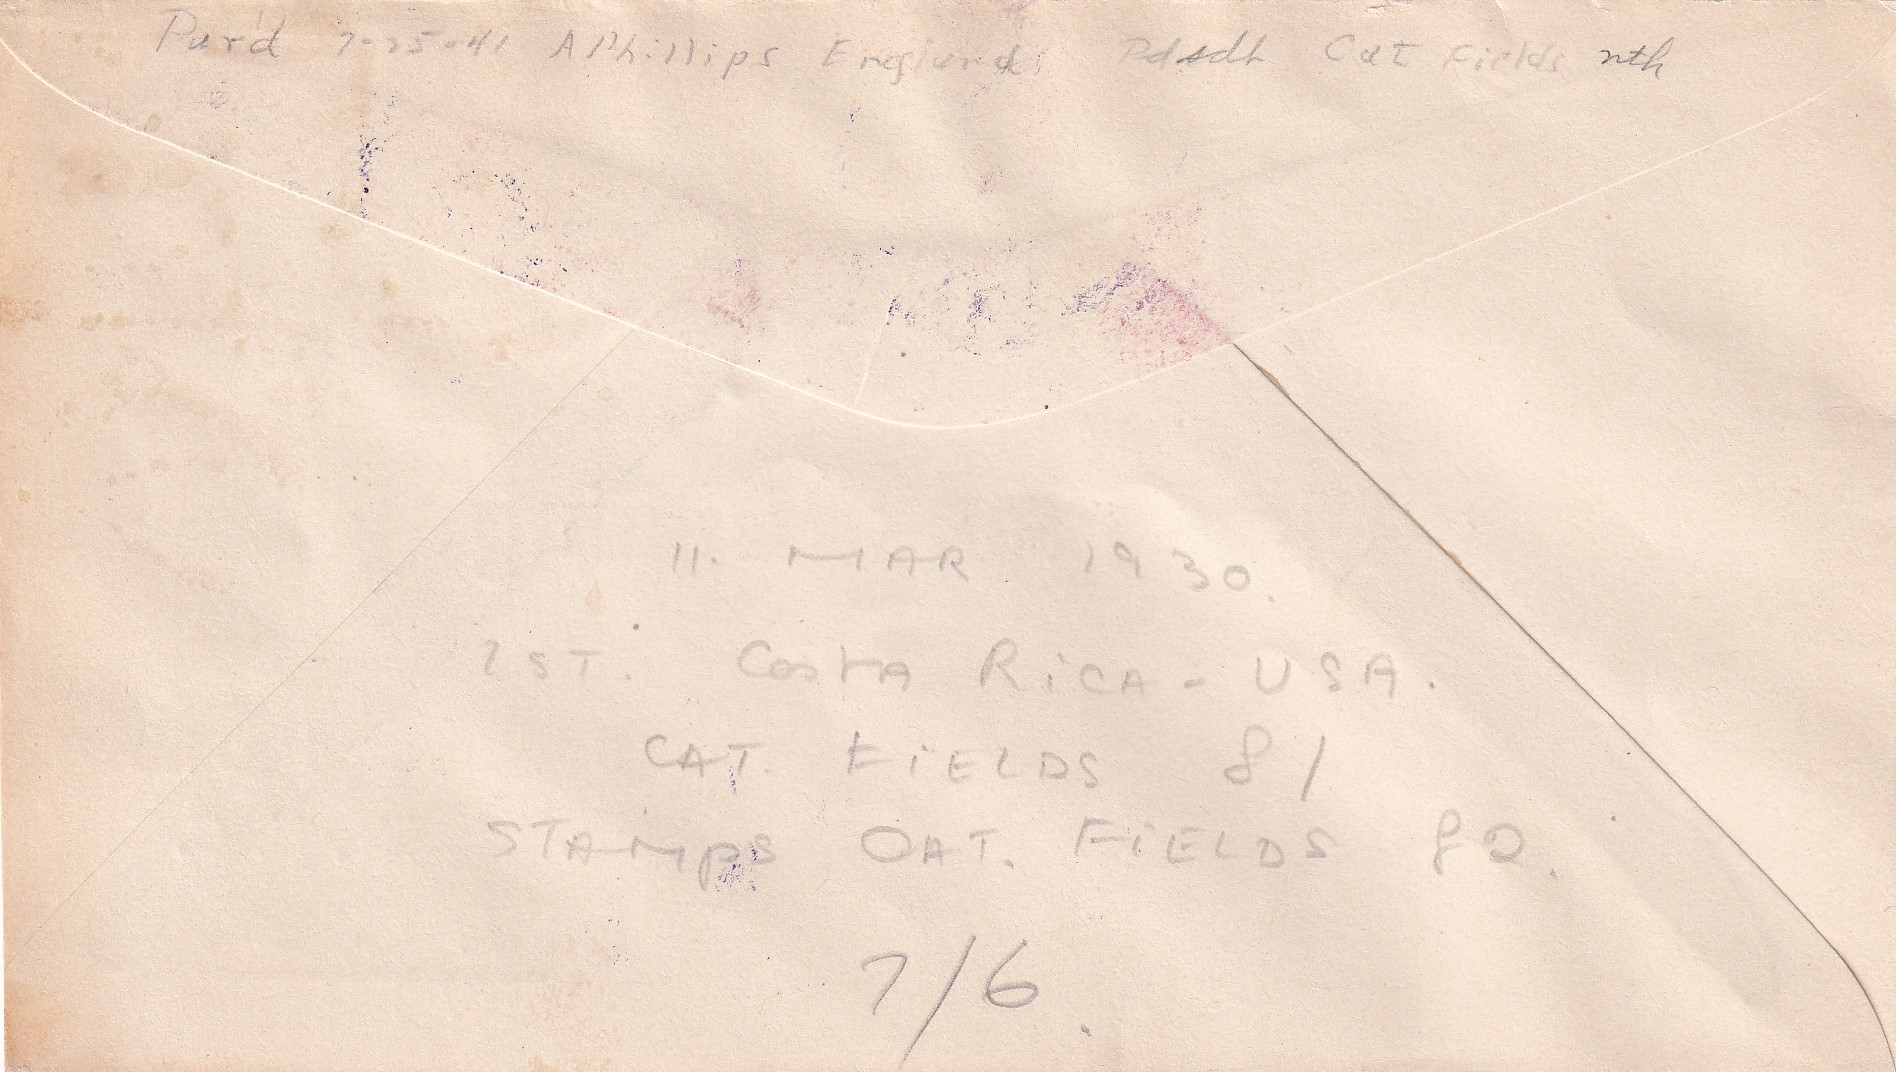 Pur'd 7-25-41 A Phillips England Cat Fields nth
11. MAR 1930.
1ST. COSTA RICA - USA.
CAT. FIELDS 8/
STAMPS CAT. FIELDS 82.
7/6.